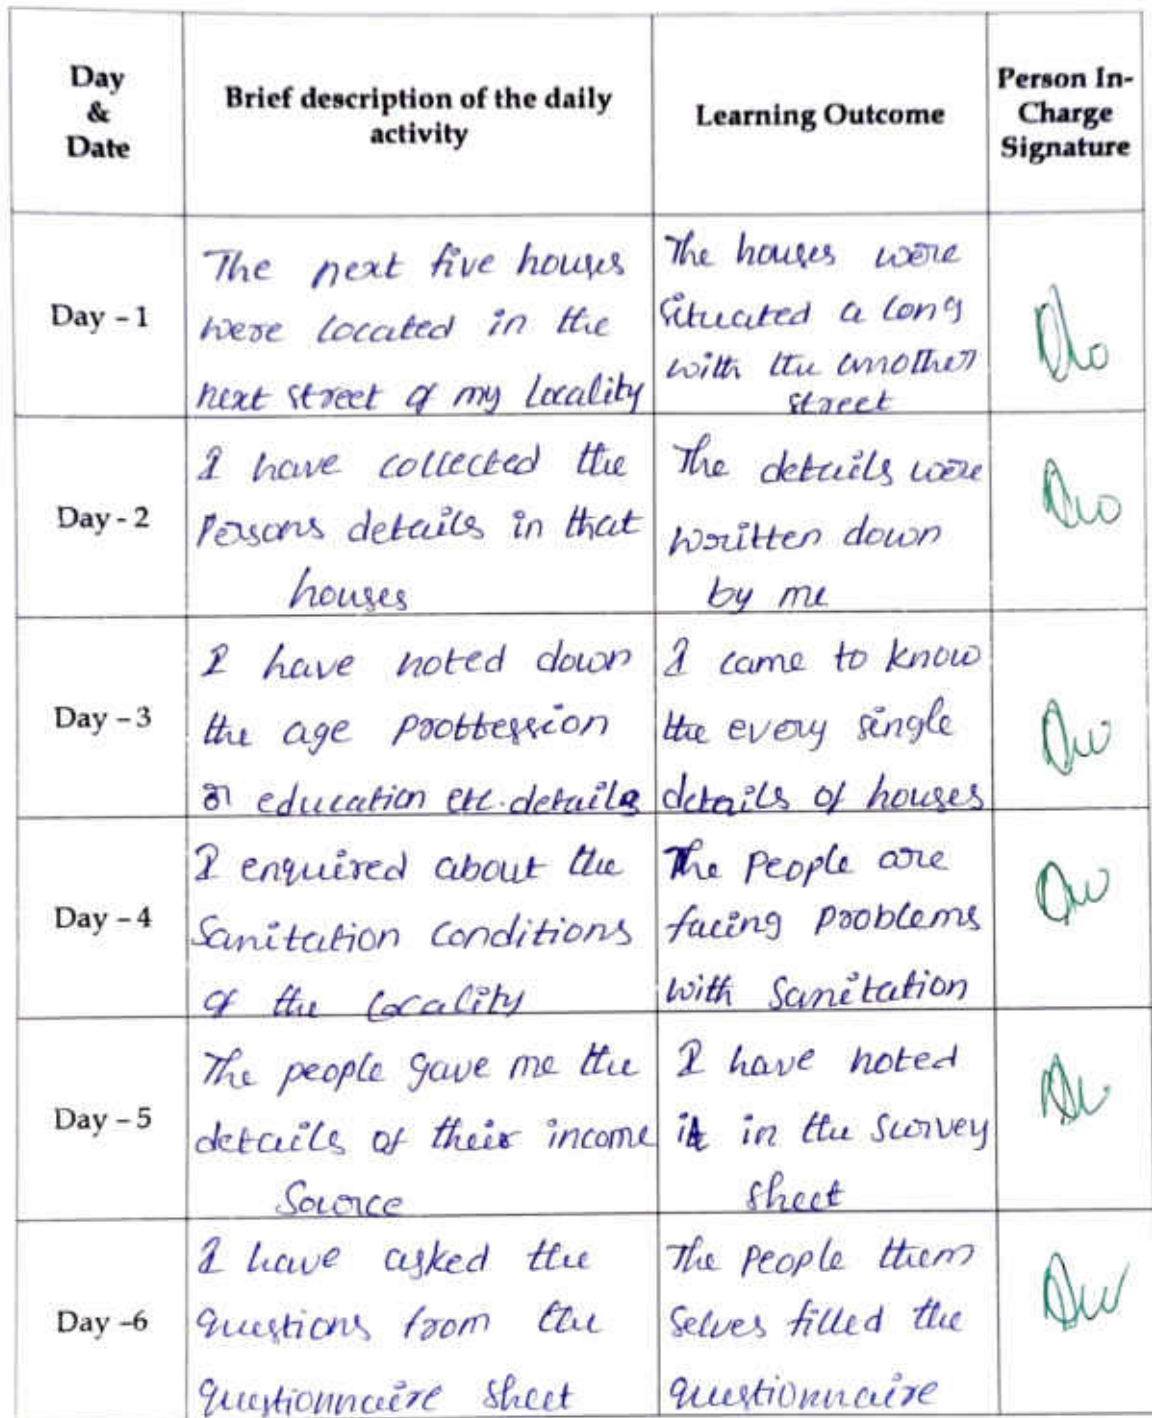 Day
&
Date
Brief description of the daily
activity
Learning Outcome
Person In-
Charge
Signature
Day - 1
The next five houses
were located in the
next street of my locality
The houses were
situated a long
with the another
street
Day - 2
I have collected the
Persons details in that
houses
The details were
written down
by me
Day - 3
I have noted down
the age proffession
or education etc. details
I came to know
the every single
details of houses
Day - 4
I enquired about the
Sanitation conditions
of the locality
The people are
facing problems
with sanitation
Day - 5
The people gave me the
details of their income
Source
I have noted
it in the survey
sheet
Day -6
I have asked the
questions from the
questionnaire sheet
The people them
selves filled the
questionnaire